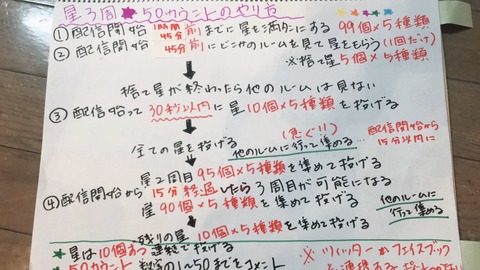 星3個★50カウントのやり方
①配信開始 1時間45分前までに星を満タンにする 99個×5種類
②配信開始 45分前にどこかのルームを見て星をもらう(1回だけ)
※捨て星5個×5種類
捨て星が終わったら他のルームは見ない
③配信始って30秒以内に星10個×5種類を投げる
全ての星を投げる (急ぐ!!) 他のルームに行って集める… 配信開始から15分以内に
星2周目95個×5種類を集めて投げる
④配信開始から15分経過したら3周目が可能になる
星90個×5種類を集めて投げる 他のルームに行って集める
残りの星10個×5種類を集めて投げる
★星は10個ずつ連続で投げる
※ツィッターかフェイスブック
★50カウント 数字の1~50までをコメント